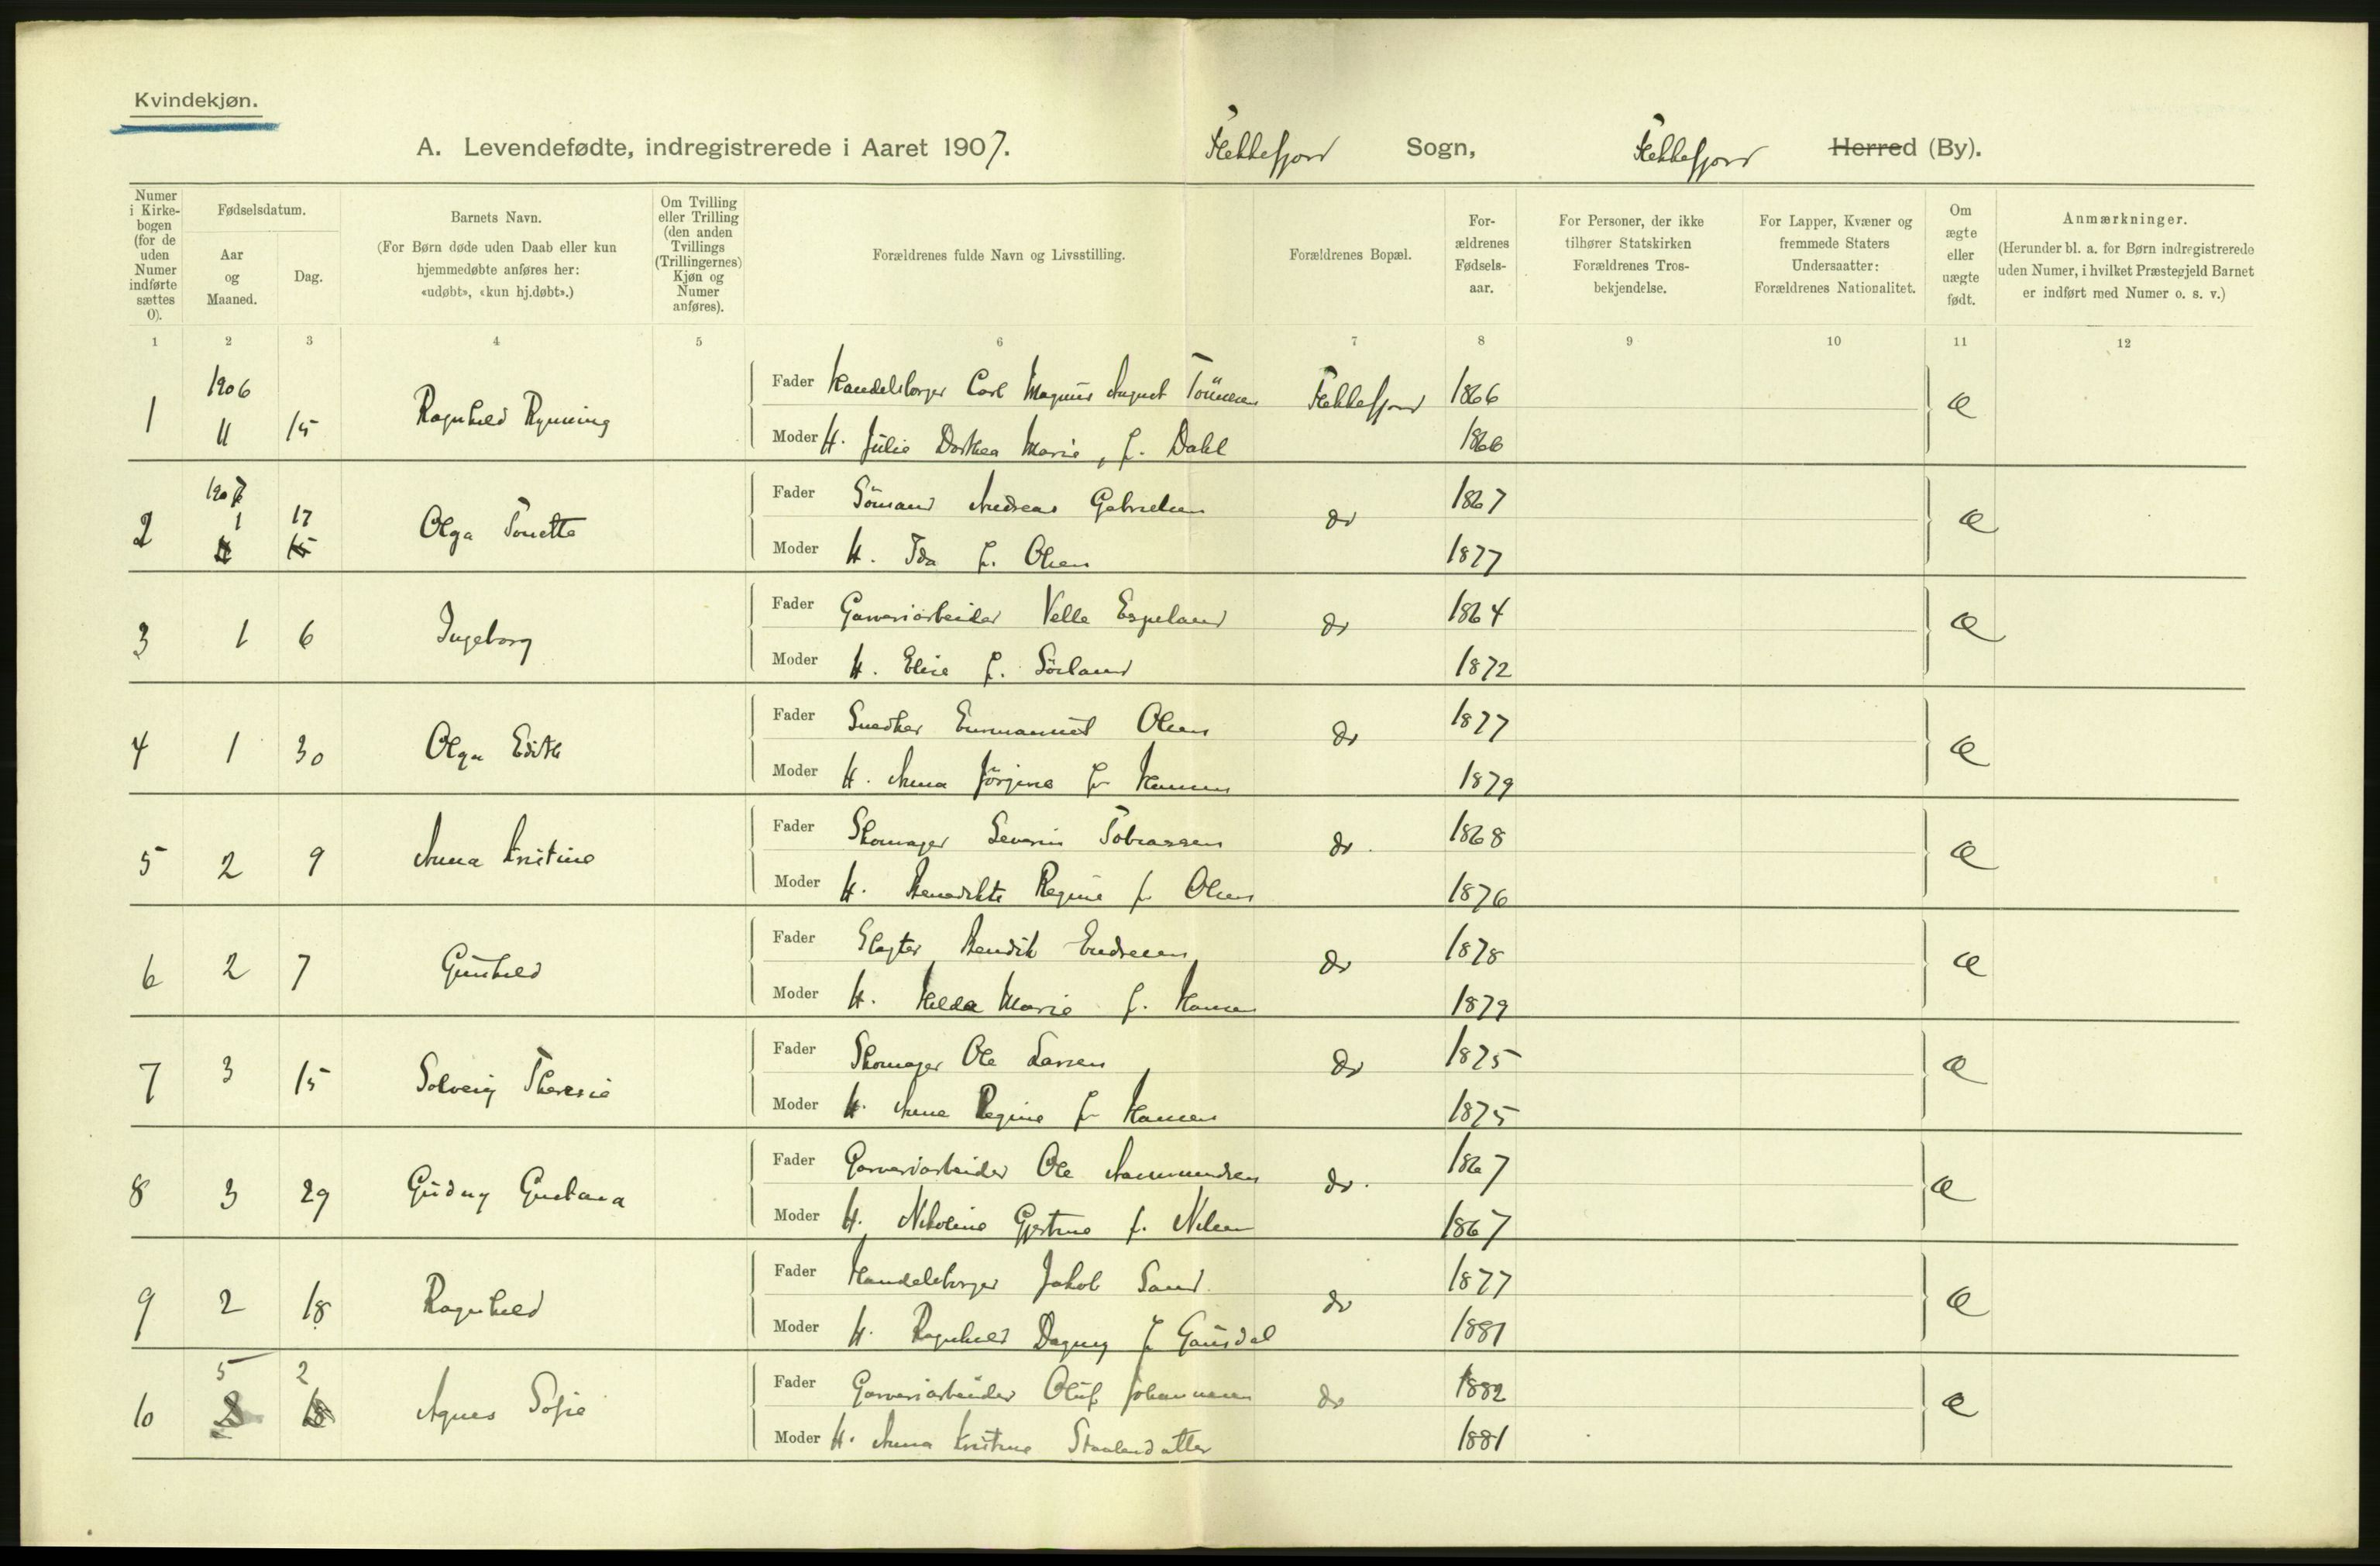 Kvindekjøn.
A. Levendefødte, indregistrerede i Aaret 1907. Flekkefjord Sogn, Flekkefjord Herred (By).
Numer i Kirkebogen (for de uden Numer indførte sættes 0).
Fødselsdatum.
Aar og Maaned.
Dag.
Barnets Navn.
(For Børn døde uden Daab eller kun hjemmedøbte anføres her: «udøbt», «kun hj.døbt».)
Om Tvilling eller Trilling (den anden Tvillings (Trillingernes) Kjøn og Numer anføres).
Forældrenes fulde Navn og Livsstilling.
Forældrenes Bopæl.
For-ældrenes Fødsels-aar.
For Personer, der ikke tilhører Statskirken Forældrenes Tros-bekjendelse.
For Lapper, Kvæner og fremmede Staters Undersaatter: Forældrenes Nationalitet.
Om ægte eller uægte født.
Anmærkninger.
(Herunder bl. a. for Børn indregistrerede uden Numer, i hvilket Præstegjeld Barnet er indført med Numer o. s. v.)
1 2 3 4 5 6 7 8 9 10 11 12
1 1906 11 15 Ragnhild Rynning Fader Handelsborger Carl Magnus August Tönnesen Flekkefjord 1866 Æ
Moder H. Julie Dorthea Marie, f. Dahl 1866
2 1907 1 17 Olga Tonette Fader Sömand Andreas Gabrielsen do 1867 Æ
11 15 Moder H. Ida f. Olsen 1877
3 1 6 Ingeborg Fader Garveriarbeider Velle Espeland do 1864 Æ
Moder H. Elise f. Sörland 1872
4 1 30 Olga Edith Fader Snedker Emmanuel Olsen do 1877 Æ
Moder H. Anna Jörgine f. Hansen 1879
5 2 9 Anna Kristine Fader Skomager Severin Tobiassen do. 1868 Æ
Moder H. Benedikte Regine f. Olsen 1876
6 2 7 Gunhild Fader Slagter Bendik Endresen do 1878 Æ
Moder H. Hilda Marie f. Hansen 1879
7 3 15 Solveig Theresie Fader Skomager Ole Larsen do 1875 Æ
Moder H. Anna Regine f. Hansen 1875
8 3 29 Gudny Gustava Fader Garveriarbeider Ole Aanmundsen do. 1867 Æ
Moder H. Nikoline Gjertine f. Nilsen 1867
9 2 18 Ragnhild Fader Handelsborger Jakob Sand do 1877 Æ
Moder H. Ragnhild Dagny f. Gausdal 1881
10 5 2 Agnes Sofie Fader Garveriarbeider Oluf Johannesen do 1882 Æ
2 18 Moder H. Anna Kristine Staalesdatter 1881